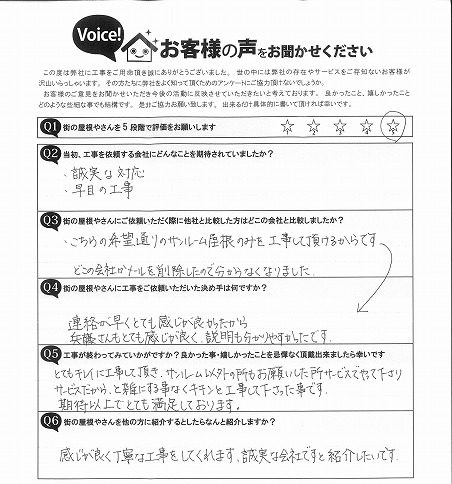 Voice!
お客様の声をお聞かせください
この度は弊社に工事をご用命頂き誠にありがとうございました。世の中には弊社の存在やサービスをご存知ないお客様が
沢山いらっしゃいます。その方たちに弊社をよく知って頂くためのアンケートにご協力頂けないでしょうか。
お客様のご意見をお聞かせいただき今後の活動に反映させていただきたいと考えております。良かったこと、嬉しかったこと
どのような些細な事でも結構です。是非ご協力お願い致します。出来るだけ具体的に書いて頂ければ幸いです。
Q1 街の屋根やさんを5段階で評価をお願いします
Q2 当初、工事を依頼する会社にどんなことを期待されていましたか?
・誠実な対応
・早目の工事
Q3 街の屋根やさんにご依頼いただく際に他社と比較した方はどこの会社と比較しましたか?
・こちらの希望通りのサンルーム屋根のみを工事して頂けるからです
どこの会社かメールを削除したので分からなくなりました.
Q4 街の屋根やさんに工事をご依頼いただいた決め手は何ですか?
連絡が早くとても感じが良かったから
兵藤さんもとても感じが良く、説明も分かりやすかったです.
Q5 工事が終わってみていかがですか?良かった事・嬉しかったことを忌憚なく頂戴出来ましたら幸いです
とてもキレイに工事して頂き、サンルーム以外の所もお願いした所サービスでやって下さり
サービスだから、と雑にする事なくキチンと工事して下さった事です.
期待以上でとても満足しております.
Q6 街の屋根やさんを他の方に紹介するとしたらなんと紹介しますか?
感じが良く丁寧な工事をしてくれます、誠実な会社ですと紹介したいです.